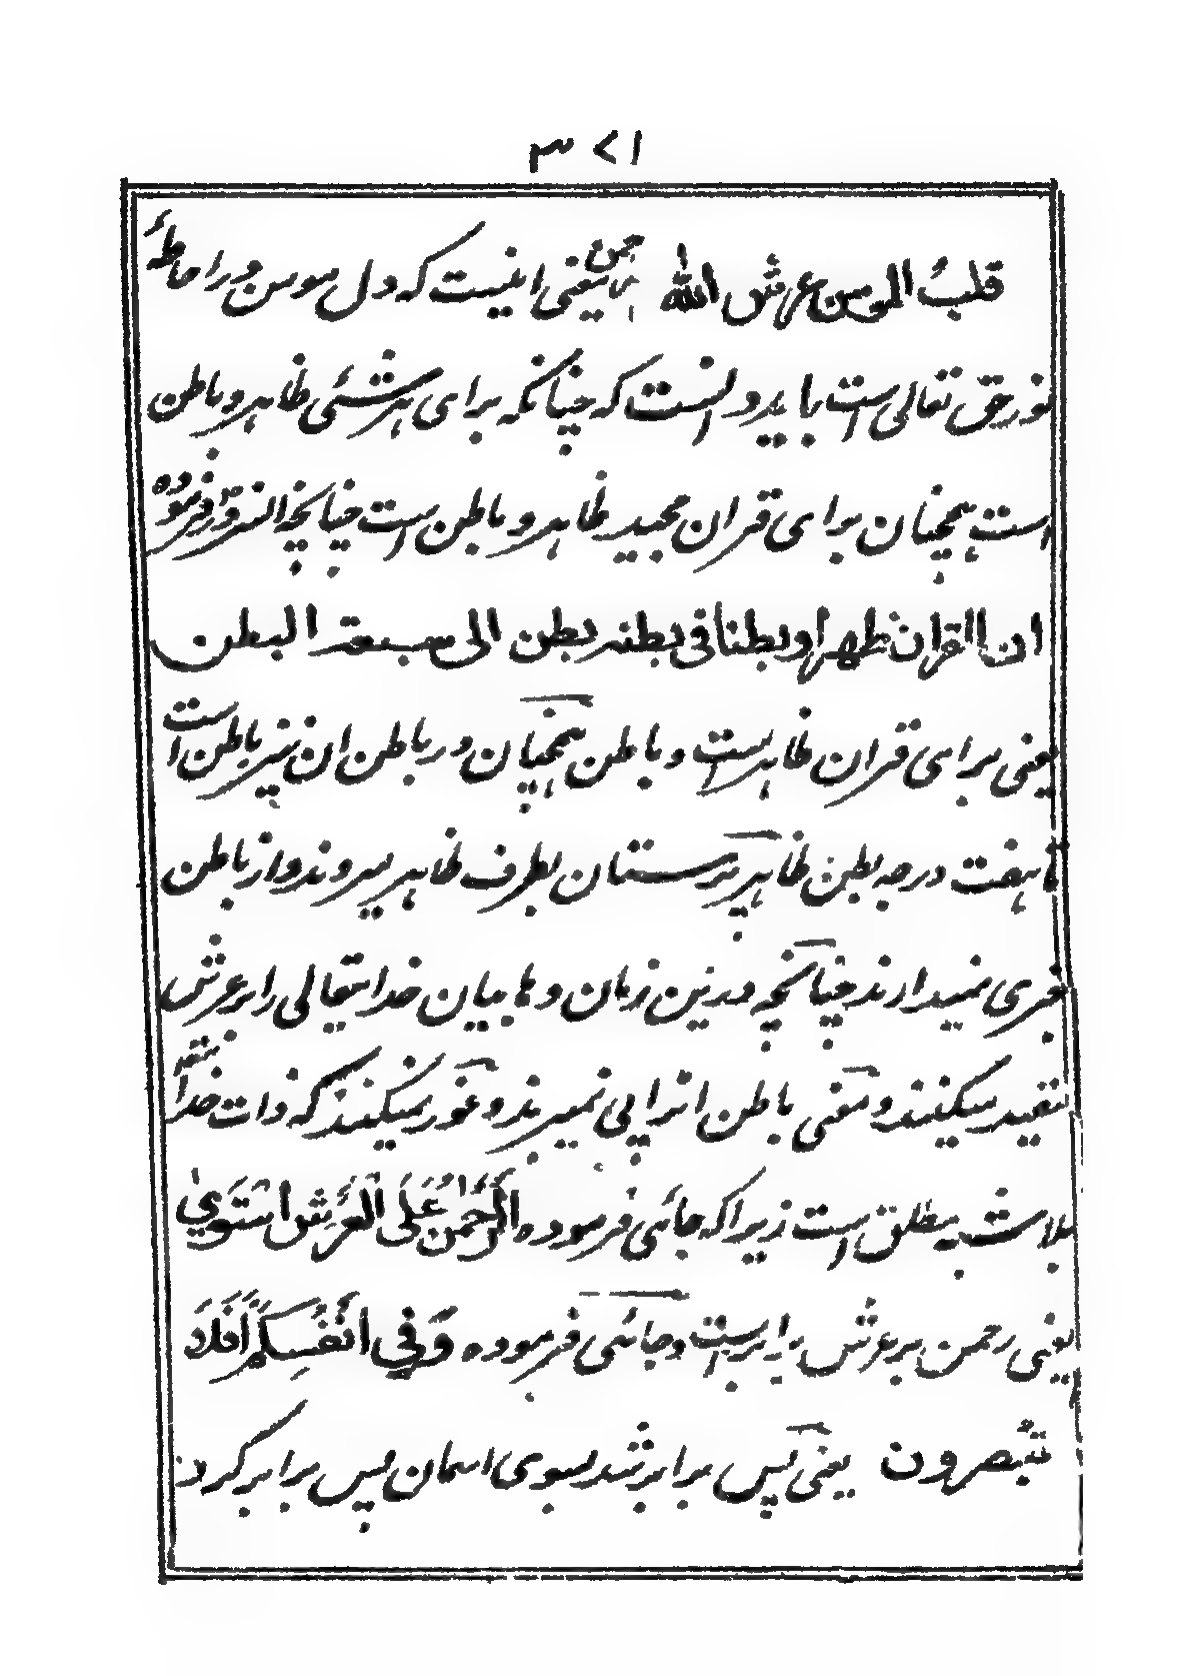 قلبُ المومن عرش الله یعنی اینست که دل مومن در احاطهٔ
نور حق تعالی است باید دانست که چنانکه برای هر شئی ظاهر و باطن
است همچنان برای قران مجید ظاهر و باطن است چنانچه فرموده
ان القران ظهرا و بطنا فی بطنه بطن الی سبعة البطن
یعنی برای قران ظاهر است و باطن همچنان در باطن ان نیز باطن است
تا هفت درجه بطن ظاهر پرستان بطرف ظاهر میروند و از باطن
خبری نمیدارند چنانچه درین زمان وهابیان خدا تعالی را بر عرش
مقید میکنند و معنی باطن انرا پی نمیبرند و غور نمیکنند که ذات خدا
بلا شبه مطلق است زیرا که جائی فرموده الرَّحْمٰنُ عَلَى الْعَرْشِ اسْتَوىٰ
یعنی رحمن بر عرش برابر است و جائی فرموده وَفِي أَنْفُسِكُمْ أَفَلَا
تُبْصِرون یعنی پس برابر شد بسوی اسمان پس برابر کرد